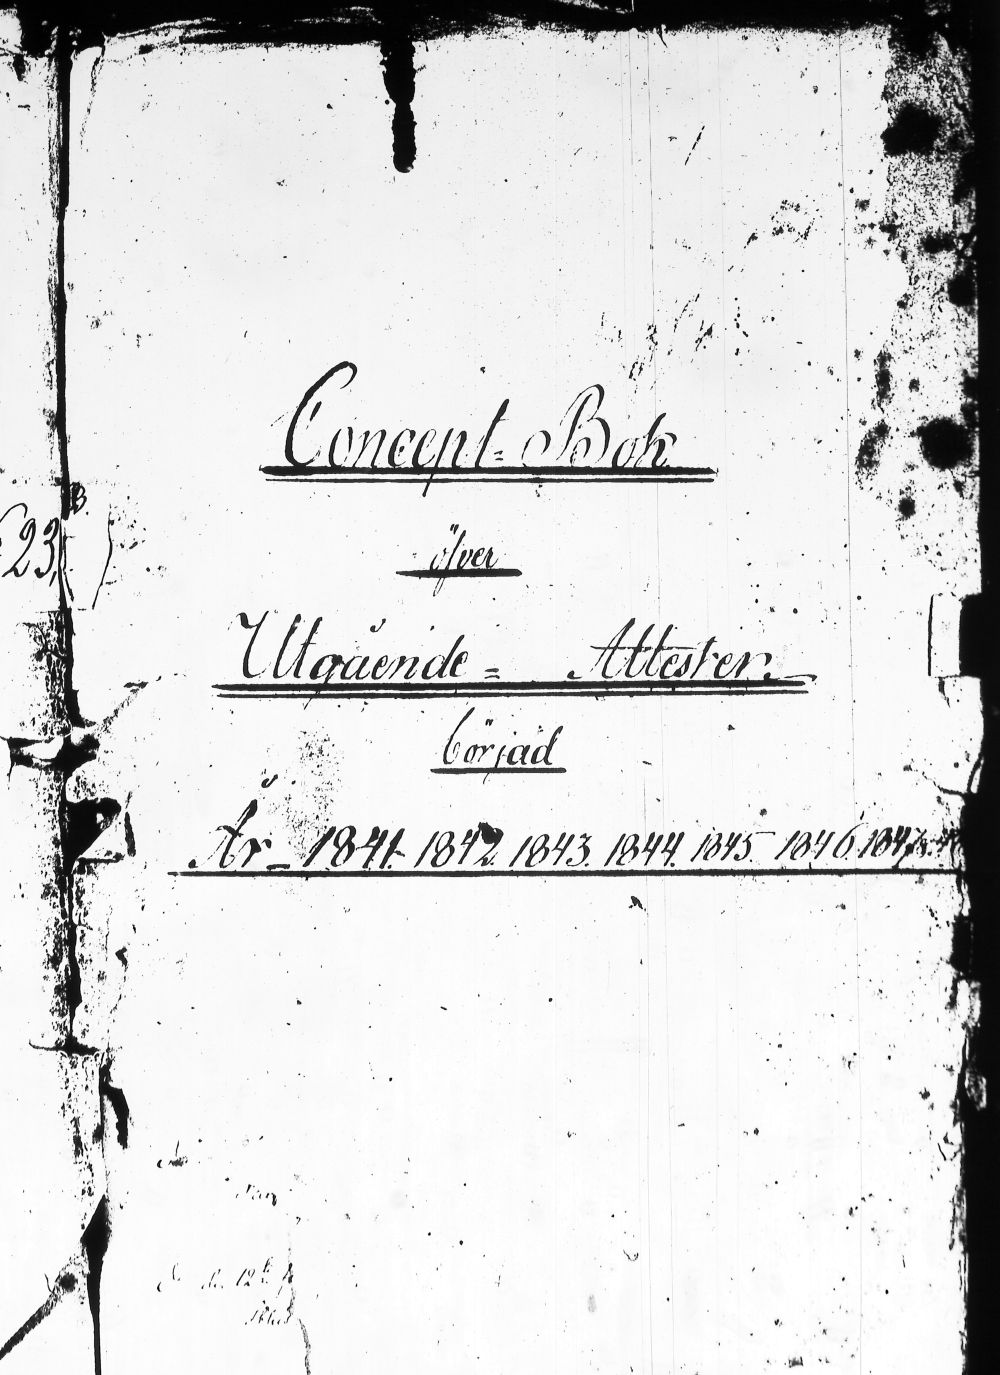 Concept = Bok
öfver
23, B.
Utgående = Attester.
börjad
År – 1841. 1842. 1843. 1844. 1845. 1846. 1847.